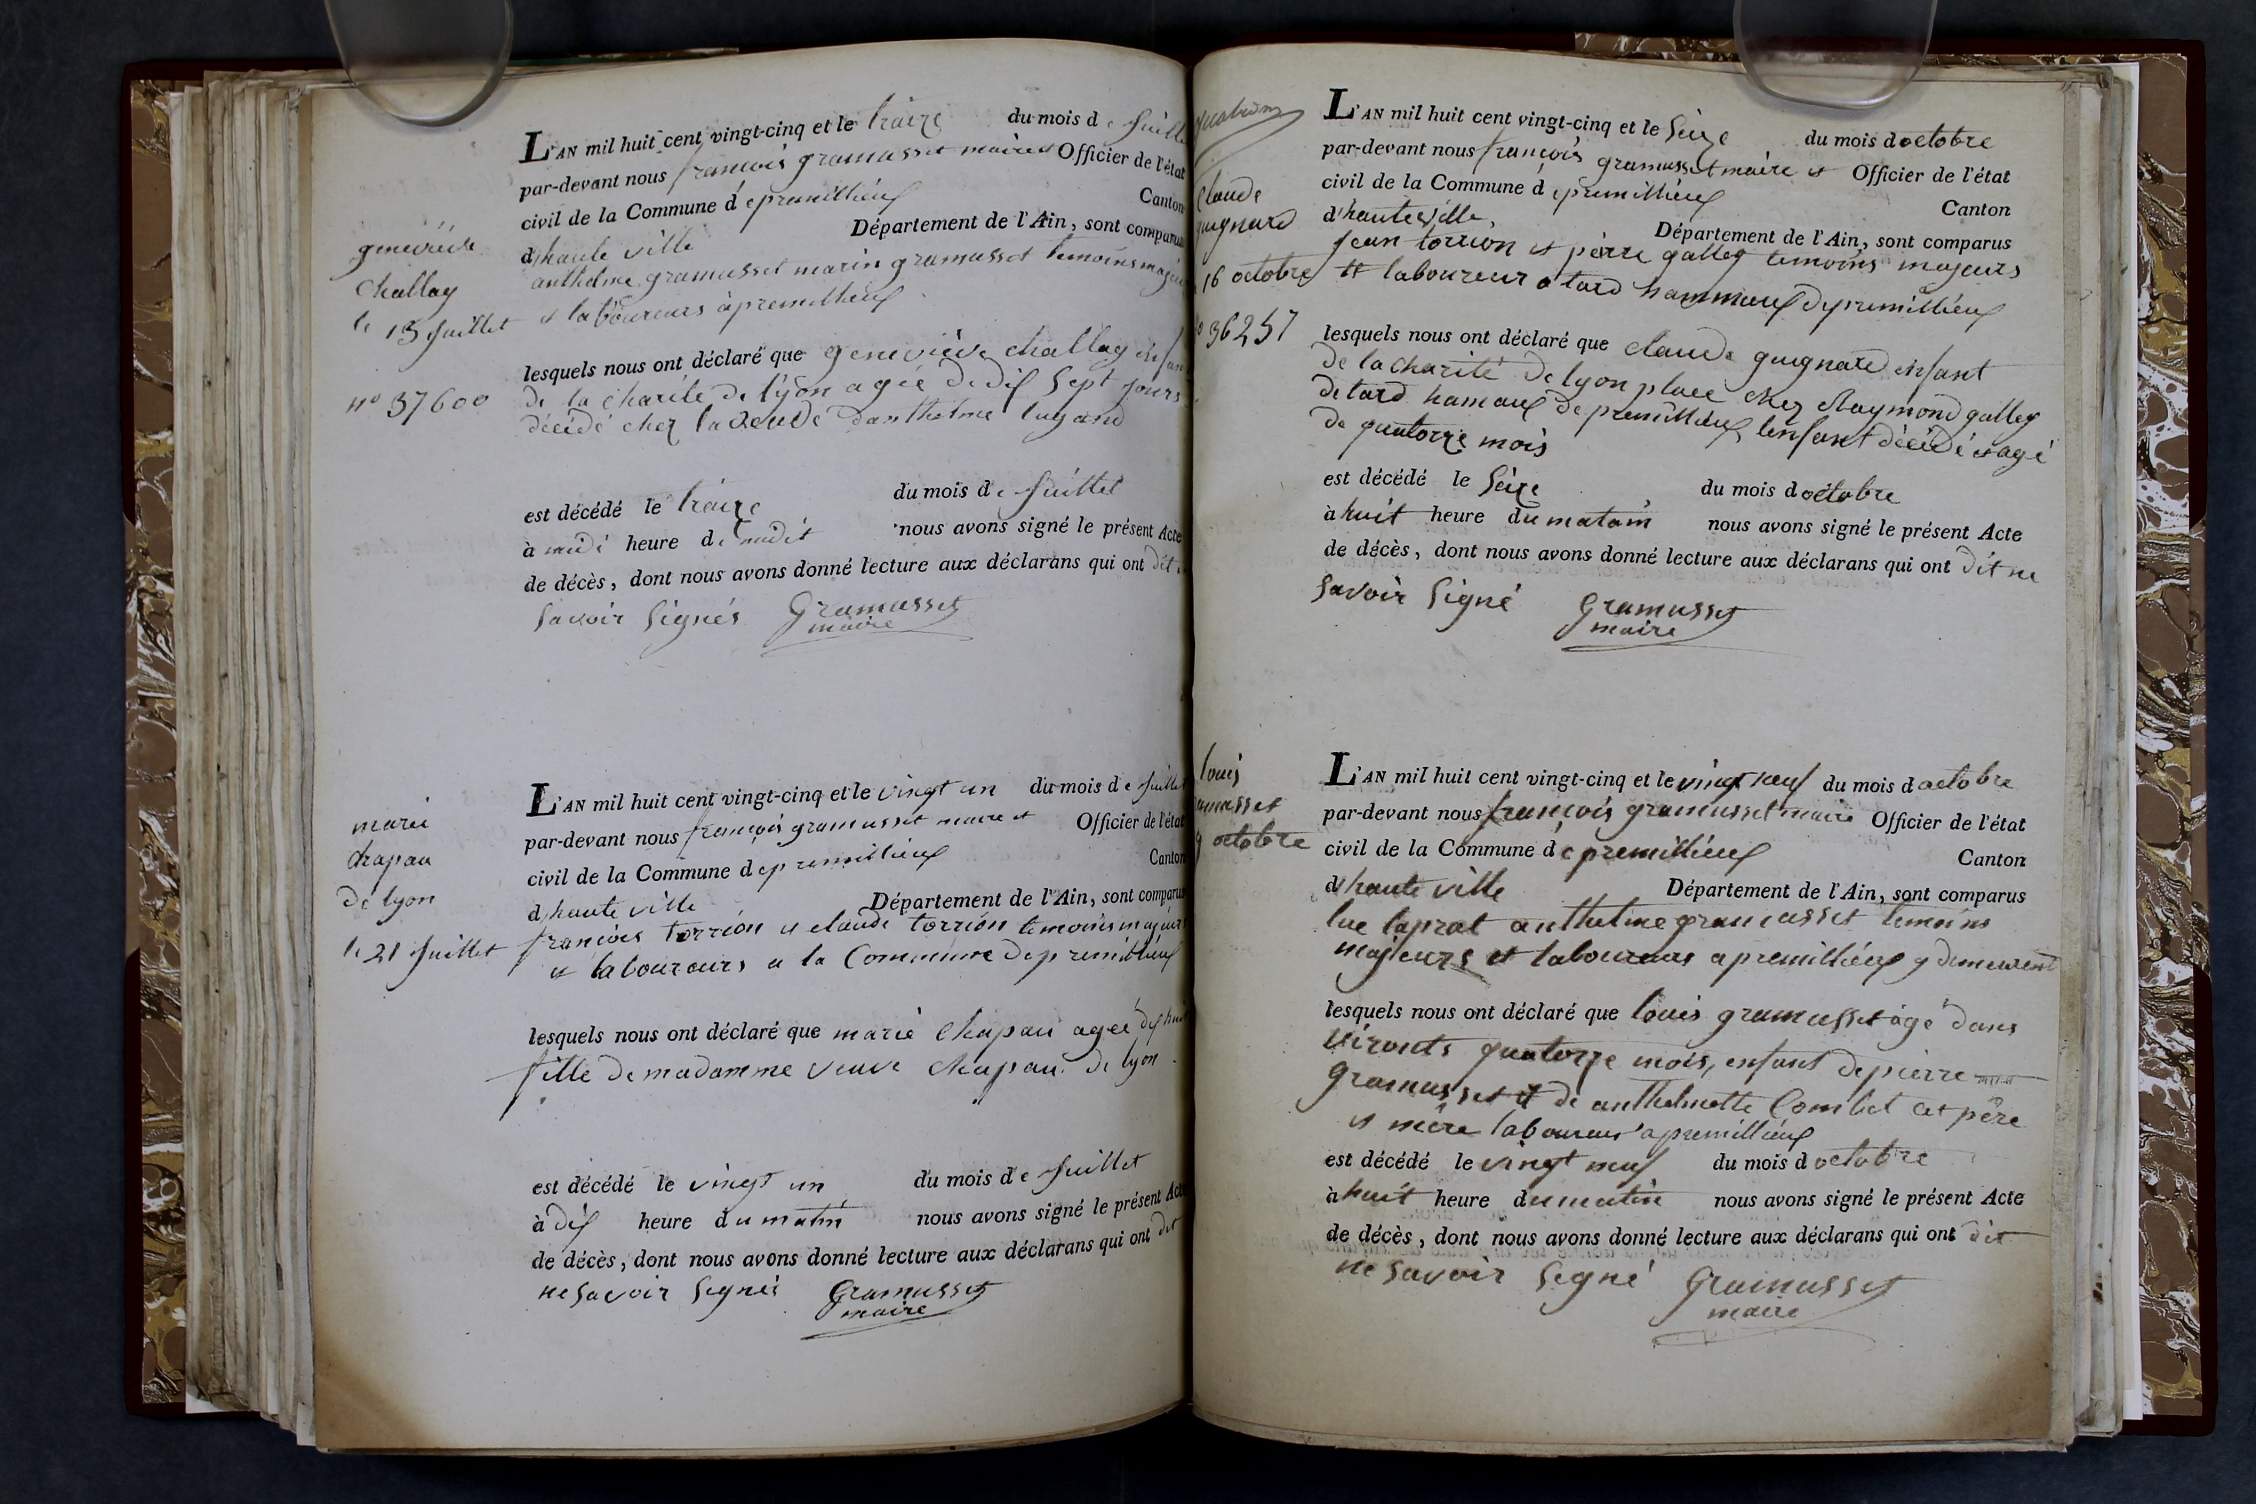 L'AN mil huit cent vingt-cinq et le traize du mois de Juill
par-devant nous françois gramusset maire et Officier de l'état
civil de la Commune d epremillieux Canton
d'haute ville Département de l'Ain, sont comparus
anthelme gramusset marin gramusset temoins majeu
et laboureurs à premillieux
genevieve
Challay
le 13 Juillet
n° 37600
lesquels nous ont déclaré que geneviève challay enfan
de la charité de lyon agée de dix sept jours
décidé chez la veuve danthelme lugand
est décédé le traize du mois de Juillet
à midi heure de midit nous avons signé le présent Acte
de décès, dont nous avons donné lecture aux déclarans qui ont dit
savoir signés Gramusset
maire
L'AN mil huit cent vingt-cinq et le vingt un du mois de Juillet
par-devant nous françois gramusset maire et Officier de l'état
civil de la Commune d epremillieux Canton
d'haute ville Département de l'Ain, sont comparus
françois torrion et claude torrion temoins majeurs
et laboureurs a la Commune de premillieux
marie
chapau
de lyon
le 21 Juillet
lesquels nous ont déclaré que marie chapau agée dix huit
fille de madamme veuve chapau de lyon
est décédé le vingt un du mois de Juillet
à dix heure du matin nous avons signé le présent Acte
de décès, dont nous avons donné lecture aux déclarans qui ont dit
ne savoir signés Gramusset
maire
L'AN mil huit cent vingt-cinq et le seize du mois doctobre
par-devant nous françois gramusset maire et Officier de l'état
civil de la Commune d epremillieux Canton
d'hauteville Département de l'Ain, sont comparus
Jean torrion et pierre galley temoins majeurs
et laboureur a tard hammeux de premillieux
Claude
guignard
16 octobre
36257
lesquels nous ont déclaré que claude guignard enfant
de la charité de lyon place chez Raymond galley
de tard hameaux de premillieux lenfant décidé et agé
de quatorze mois
est décédé le seize du mois doctobre
à huit heure du matain nous avons signé le présent Acte
de décès, dont nous avons donné lecture aux déclarans qui ont dit ne
savoir signé Gramusset
maire
L'AN mil huit cent vingt-cinq et le vingt neuf du mois doctobre
par-devant nous françois gramusset maire Officier de l'état
civil de la Commune de premillieux Canton
d'haute ville Département de l'Ain, sont comparus
luc laprat anthelme gramusset temoins
majeurs et laboureurs a premillieux y demeurent
louis
amusset
9 octobre
lesquels nous ont déclaré que louis gramusset agé dans
vironts quatorze mois, enfant de pierre
gramusset et de anthelmette Combet cet père
et mère laboureur a premillieux
est décédé le vingt neuf du mois doctobre
à huit heure du matin nous avons signé le présent Acte
de décès, dont nous avons donné lecture aux déclarans qui ont dit
ne savoir signé Gramusset
maire